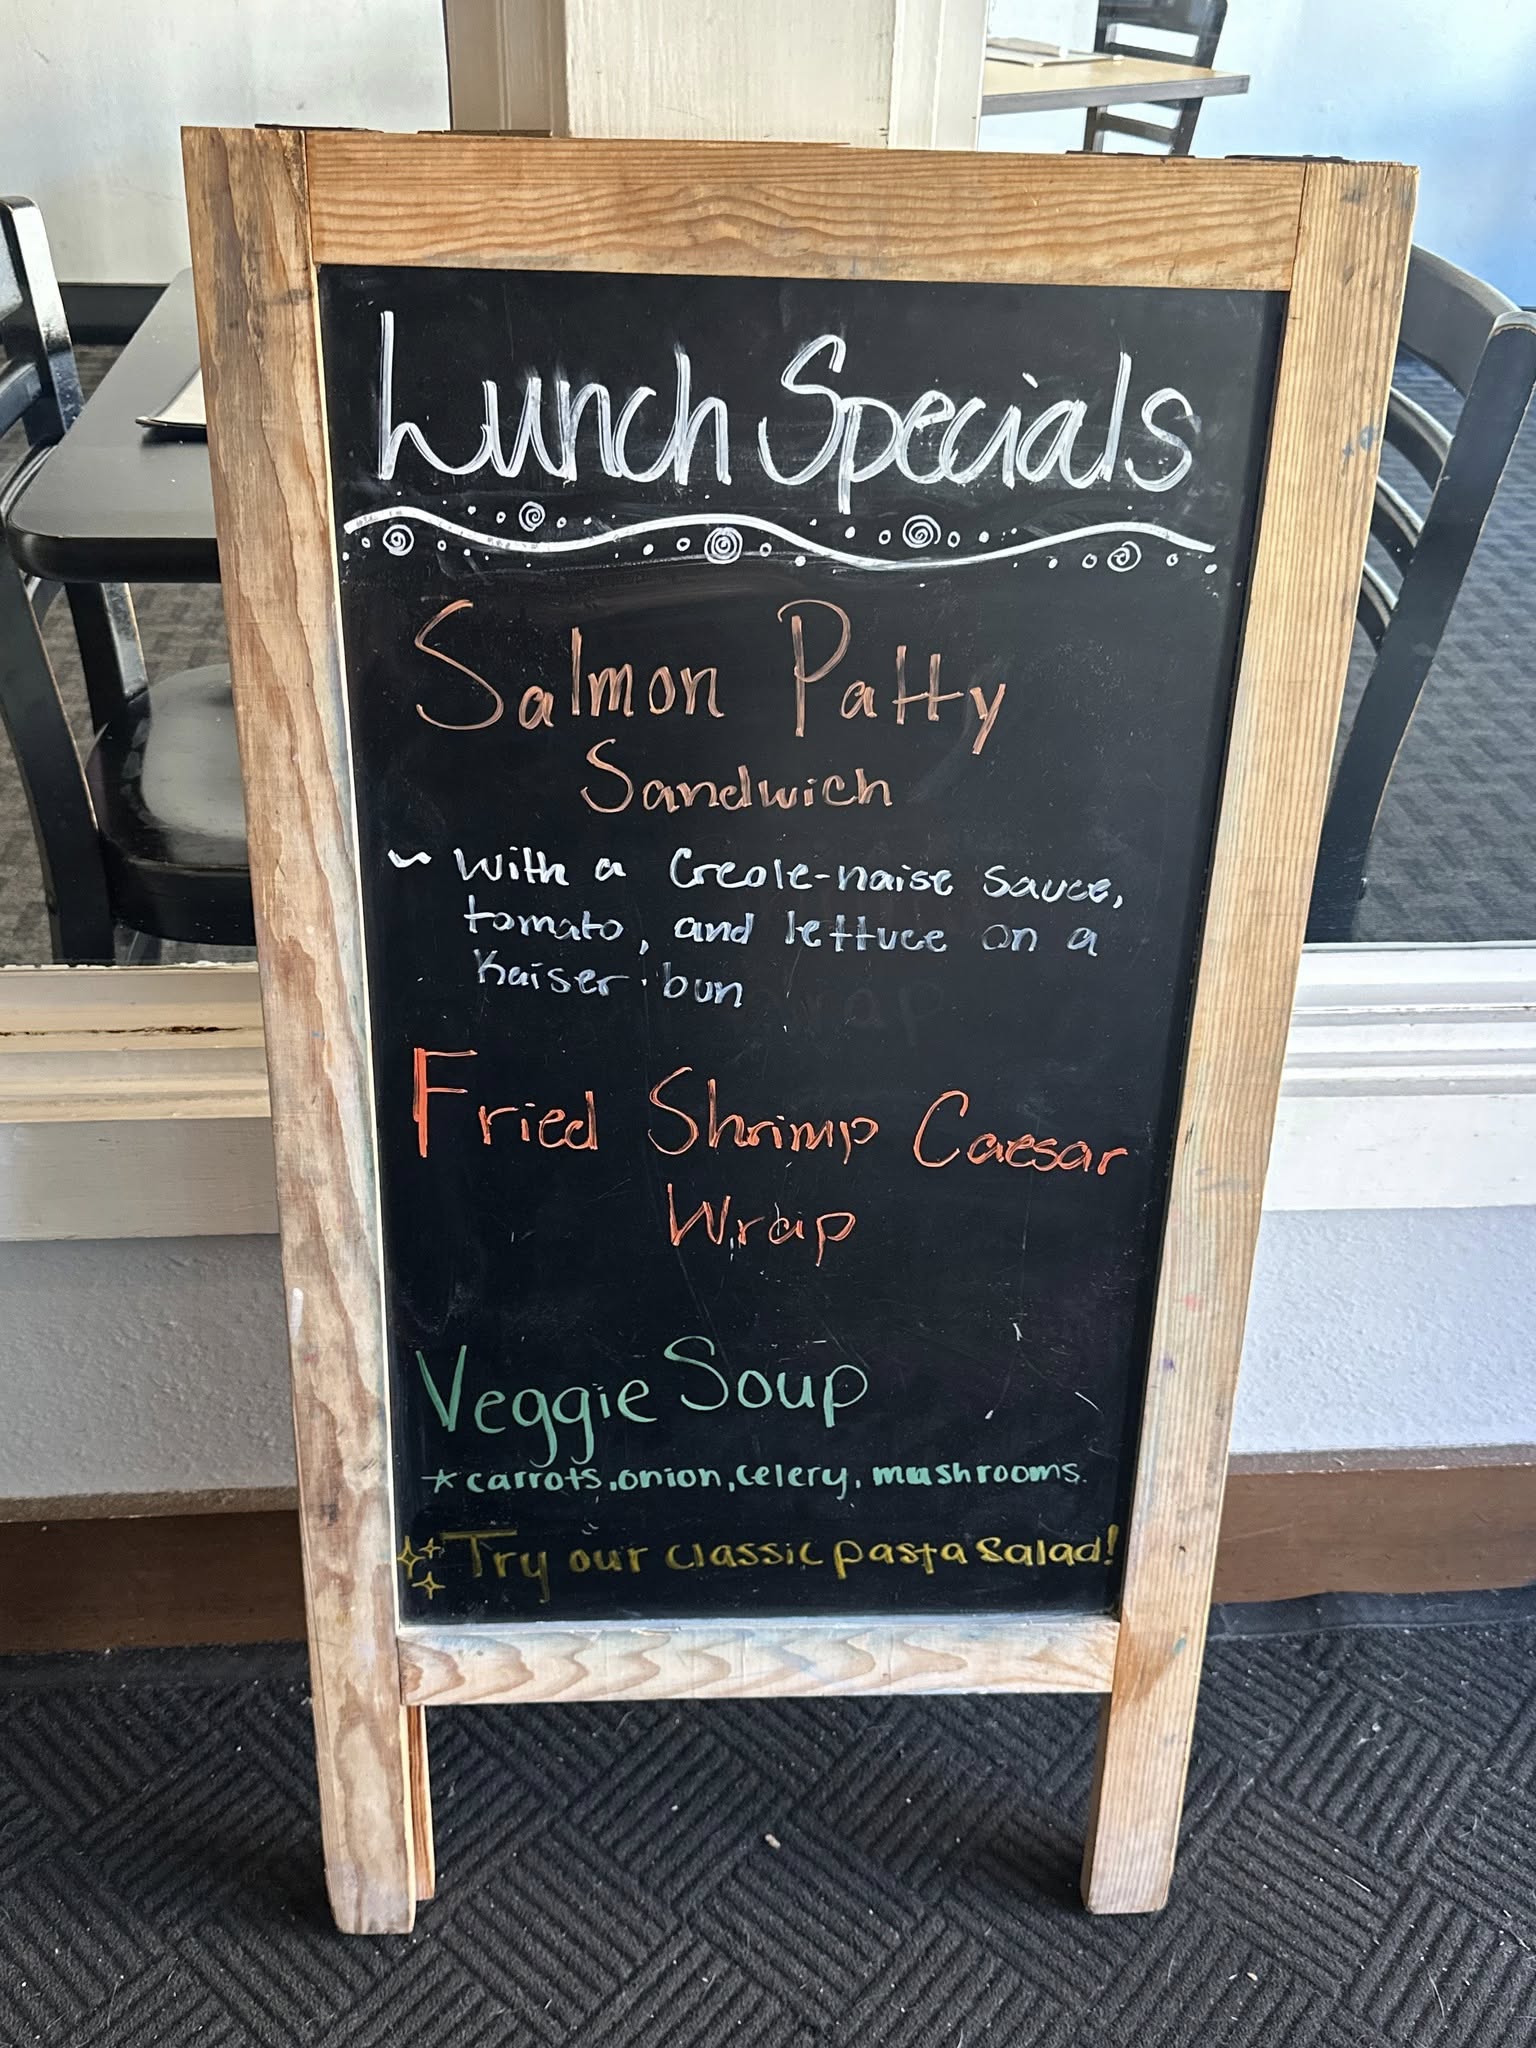 Lunch Specials
Salmon Patty
Sandwich
~ with a Creole-naise sauce,
tomato, and lettuce on a
Kaiser bun
Fried Shrimp Caesar
Wrap
Veggie Soup
* carrots, onion, celery, mushrooms.
Try our classic pasta salad!